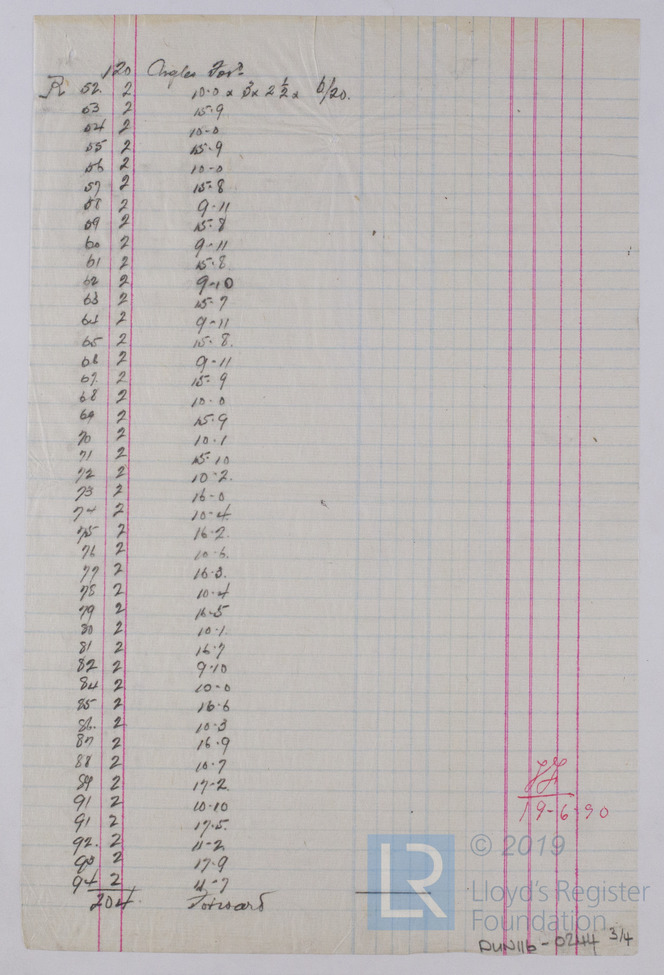 120 Angles Ford
R 52 2 10-0 x 3 x 2 1/2 x 6/20.
53 2 15-9
54 2 10-0
55 2 15-9
56 2 10-0
57 2 15-8
58 2 9-11
59 2 15-8
60 2 9-11
61 2 15-8
62 2 9-10
63 2 15-7
64 2 9-11
65 2 15-8
66 2 9-11
67 2 15-9
68 2 10-0
69 2 15-9
70 2 10-1
71 2 15-10
72 2 10-2
73 2 16-0
74 2 10-4
75 2 16-2
76 2 10-6
77 2 16-3
78 2 10-4
79 2 16-5
80 2 10-1
81 2 16-7
82 2 9-10
84 2 10-0
85 2 16-6
86 2 10-3
87 2 16-9
88 2 10-7
89 2 17-2
91 2 10-10
91 2 17-5
92 2 11-2
93 2 17-9
94 2 11-7
204 Forward
19-6-90
© 2019
LR
Lloyd's Register
Foundation
DUN116-0244 3/4